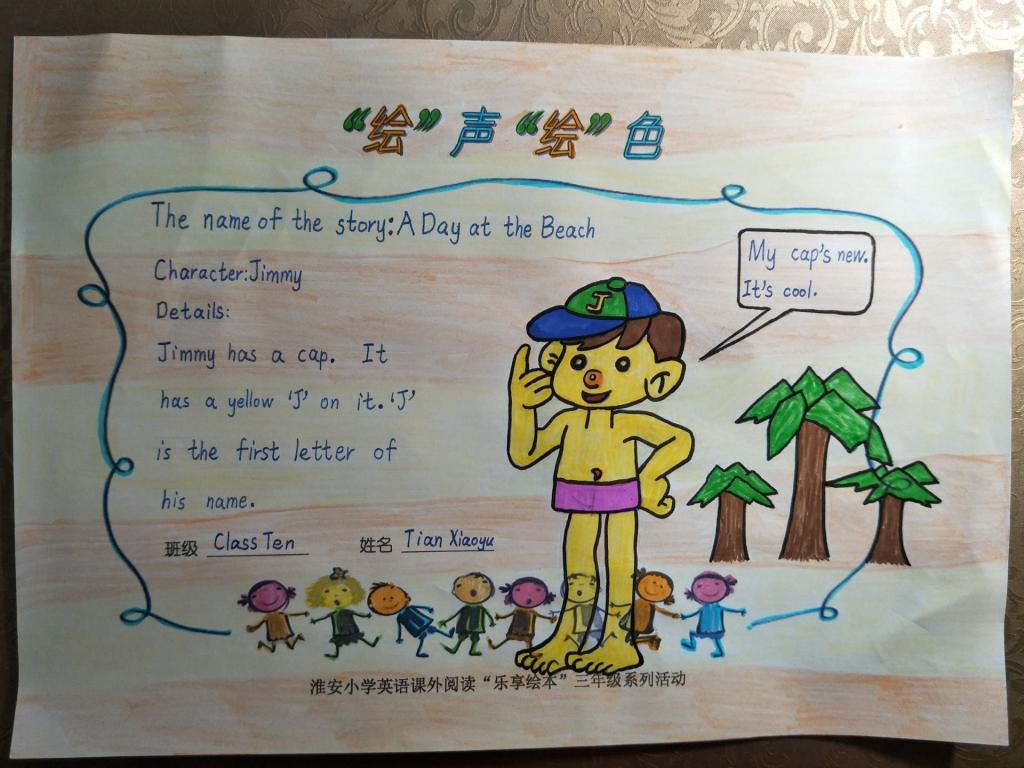 “绘”声“绘”色
The name of the story: A Day at the Beach
Character: Jimmy
Details:
Jimmy has a cap. It
has a yellow ‘J’ on it. ‘J’
is the first letter of
his name.
班级 Class Ten 姓名 Tian Xiaoyu
My cap's new.
It's cool.
J
淮安小学英语课外阅读“乐享绘本”三年级系列活动